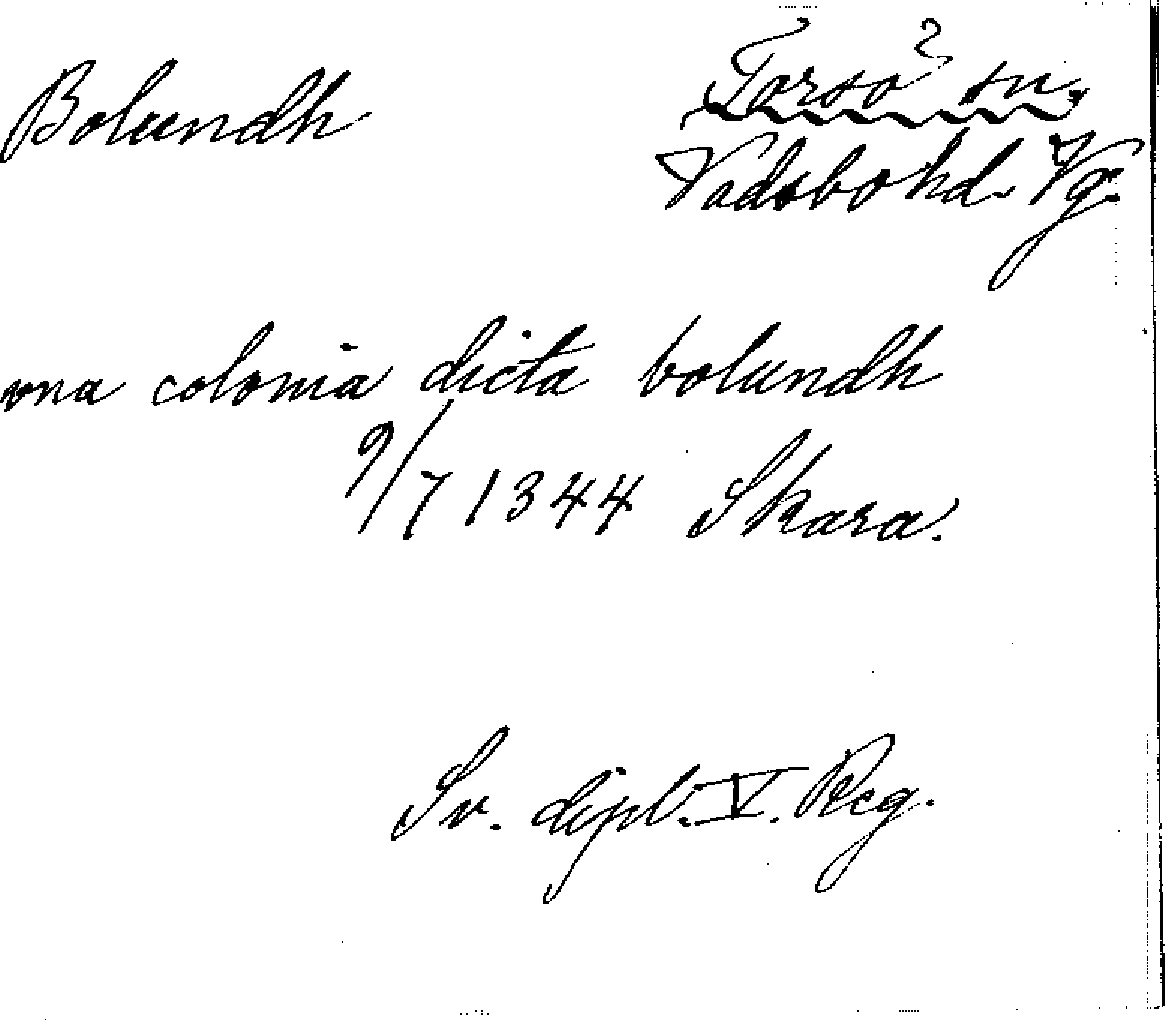 Bolundh
Torsö? sn,
Vadsbo hd. Vg.
una colonia dicta bolundh
9/7 1344 Skara.
Sv. dipl. V. Reg.